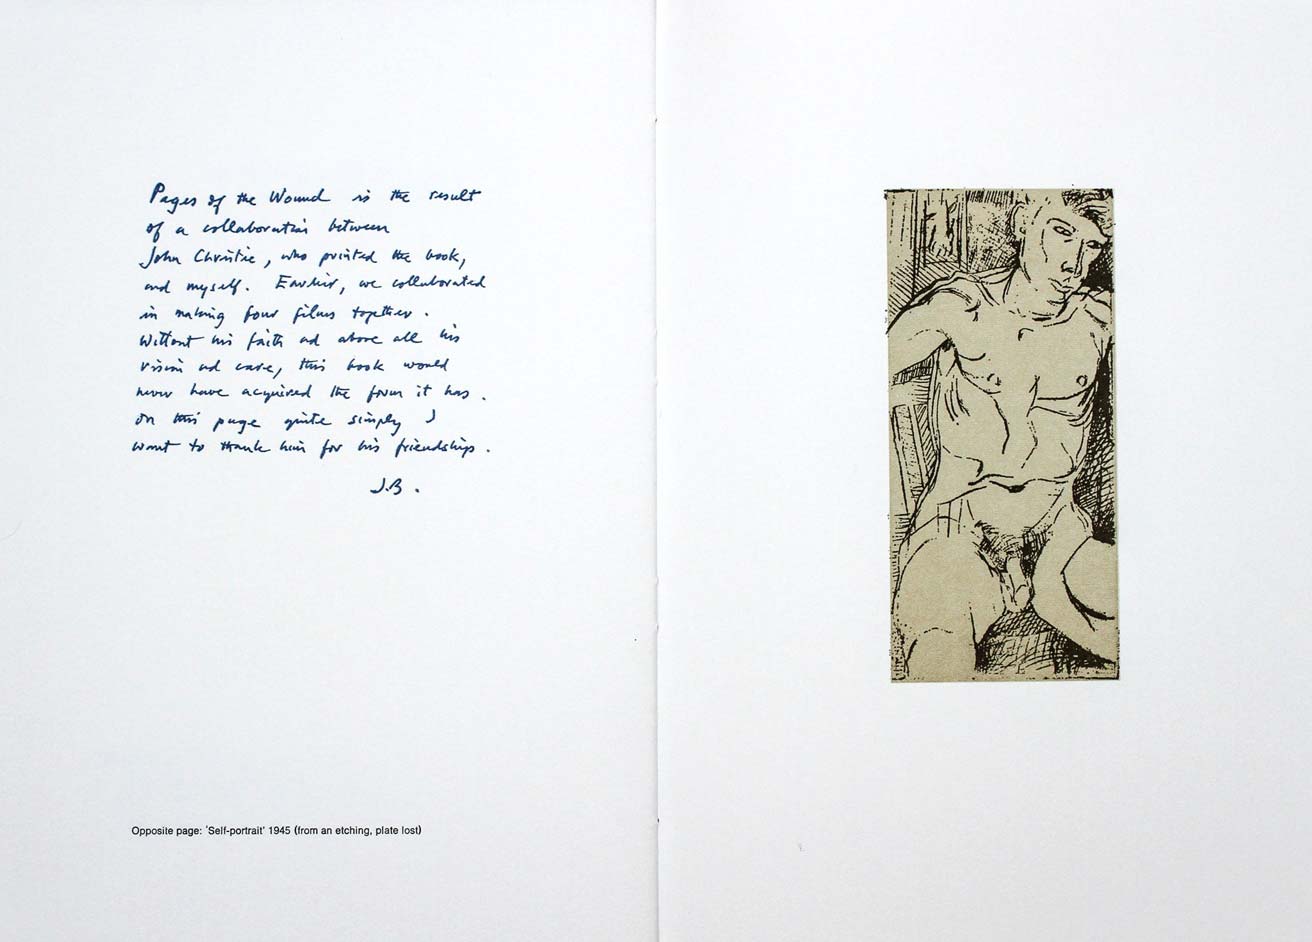 Pages of the Wound is the result
of a collaboration between
John Christie, who printed the book,
and myself. Earlier, we collaborated
in making four films together.
Without his faith and above all his
vision and care, this book would
never have acquired the form it has.
On this page quite simply I
want to thank him for his friendship.
J.B.
Opposite page: 'Self-portrait' 1945 (from an etching, plate lost)